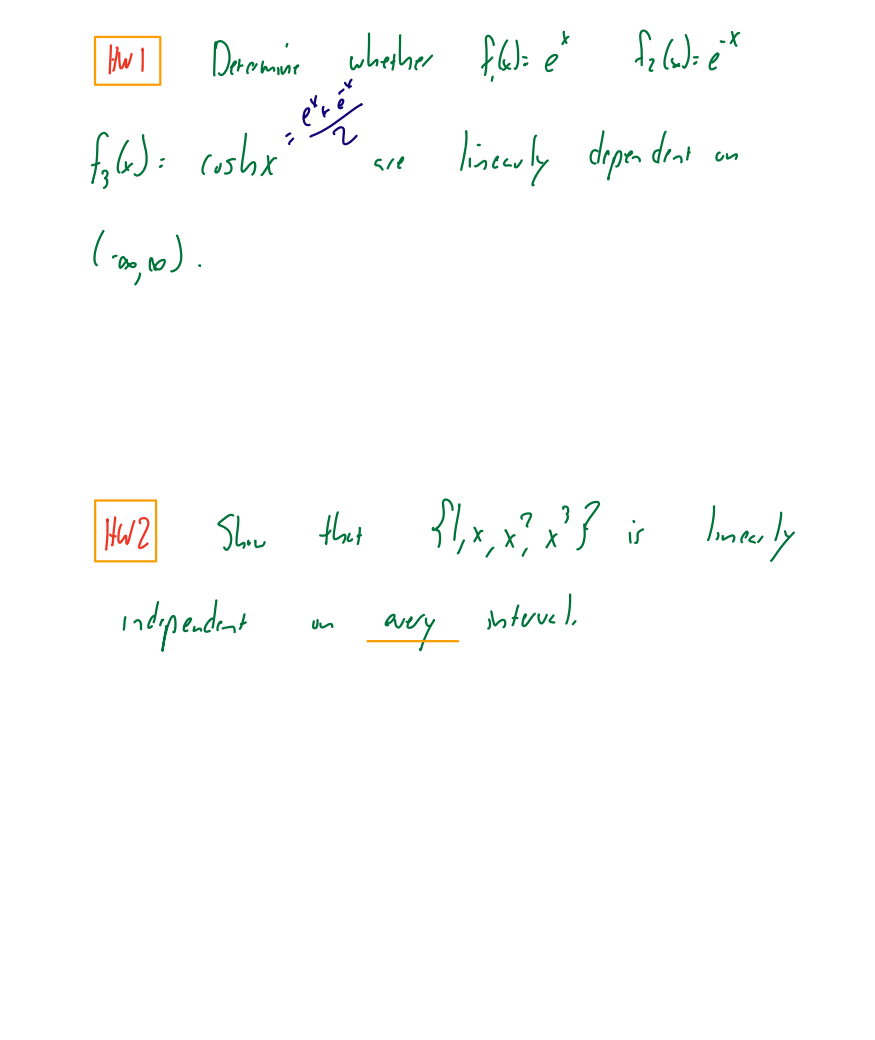 HW1 Determine whether f₁(x)= eˣ f₂(x)= e⁻ˣ
f₃(x)= coshx = (eˣ + e⁻ˣ)/2 are linearly dependent on
(-∞,∞).
HW2 Show that {1, x, x², x³} is linearly
independent on every interval.